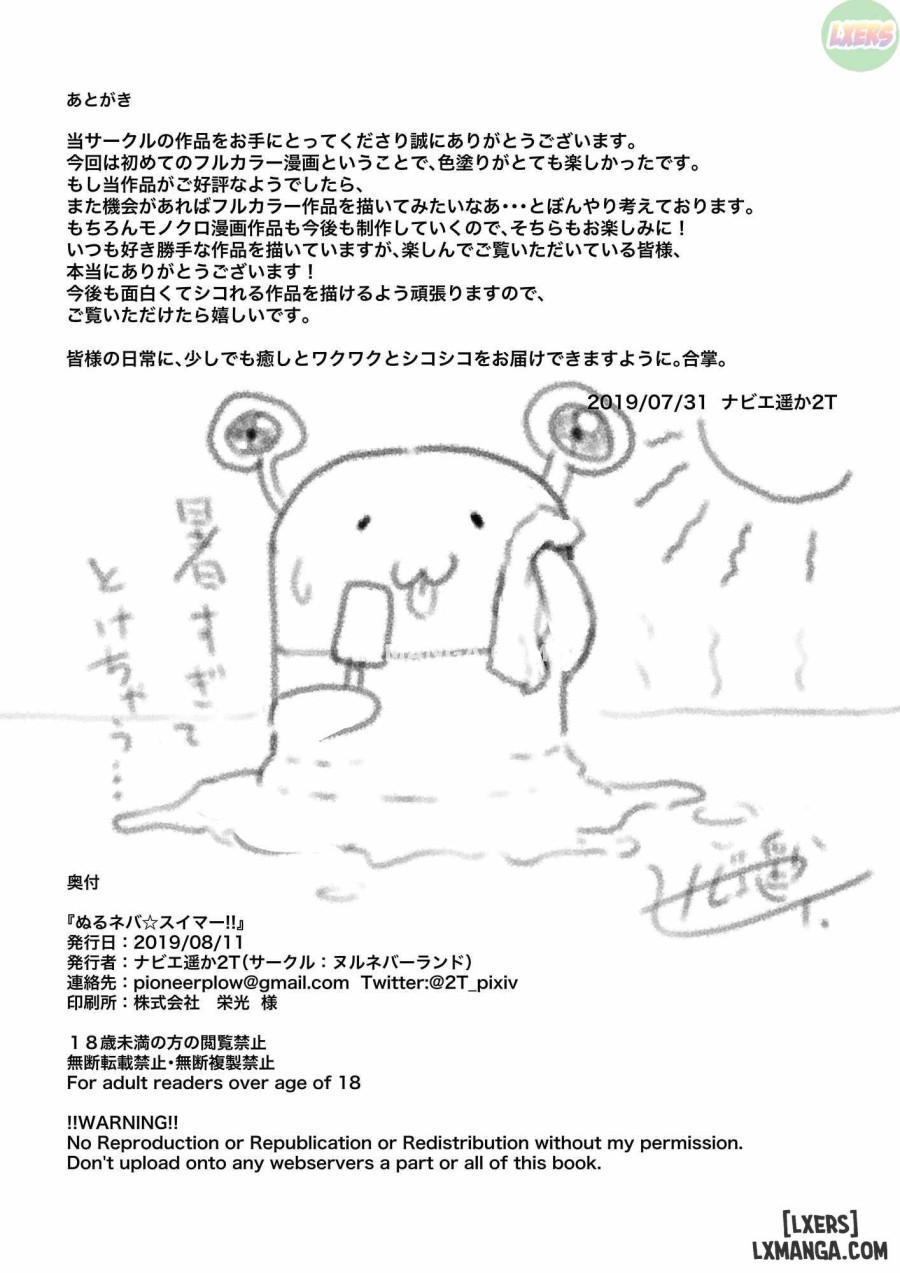 LXERS
あとがき
当サークルの作品をお手にとってくださり誠にありがとうございます。
今回は初めてのフルカラー漫画ということで、色塗りがとても楽しかったです。
もし当作品がご好評なようでしたら、
また機会があればフルカラー作品を描いてみたいなあ・・・とぼんやり考えております。
もちろんモノクロ漫画作品も今後も制作していくので、そちらもお楽しみに！
いつも好き勝手な作品を描いていますが、楽しんでご覧いただいている皆様、
本当にありがとうございます！
今後も面白くてシコれる作品を描けるよう頑張りますので、
ご覧いただけたら嬉しいです。
皆様の日常に、少しでも癒しとワクワクとシコシコをお届けできますように。合掌。
2019/07/31 ナビエ遥か2T
暑すぎて
とけちゃう…
MANGA
奥付
『ぬるネバ☆スイマー!!』
発行日：2019/08/11
発行者：ナビエ遥か2T（サークル：ヌルネバーランド）
連絡先：pioneerplow@gmail.com Twitter:@2T_pixiv
印刷所：株式会社　栄光 様
１８歳未満の方の閲覧禁止
無断転載禁止・無断複製禁止
For adult readers over age of 18
!!WARNING!!
No Reproduction or Republication or Redistribution without my permission.
Don't upload onto any webservers a part or all of this book.
[LXERS]
LXMANGA.COM